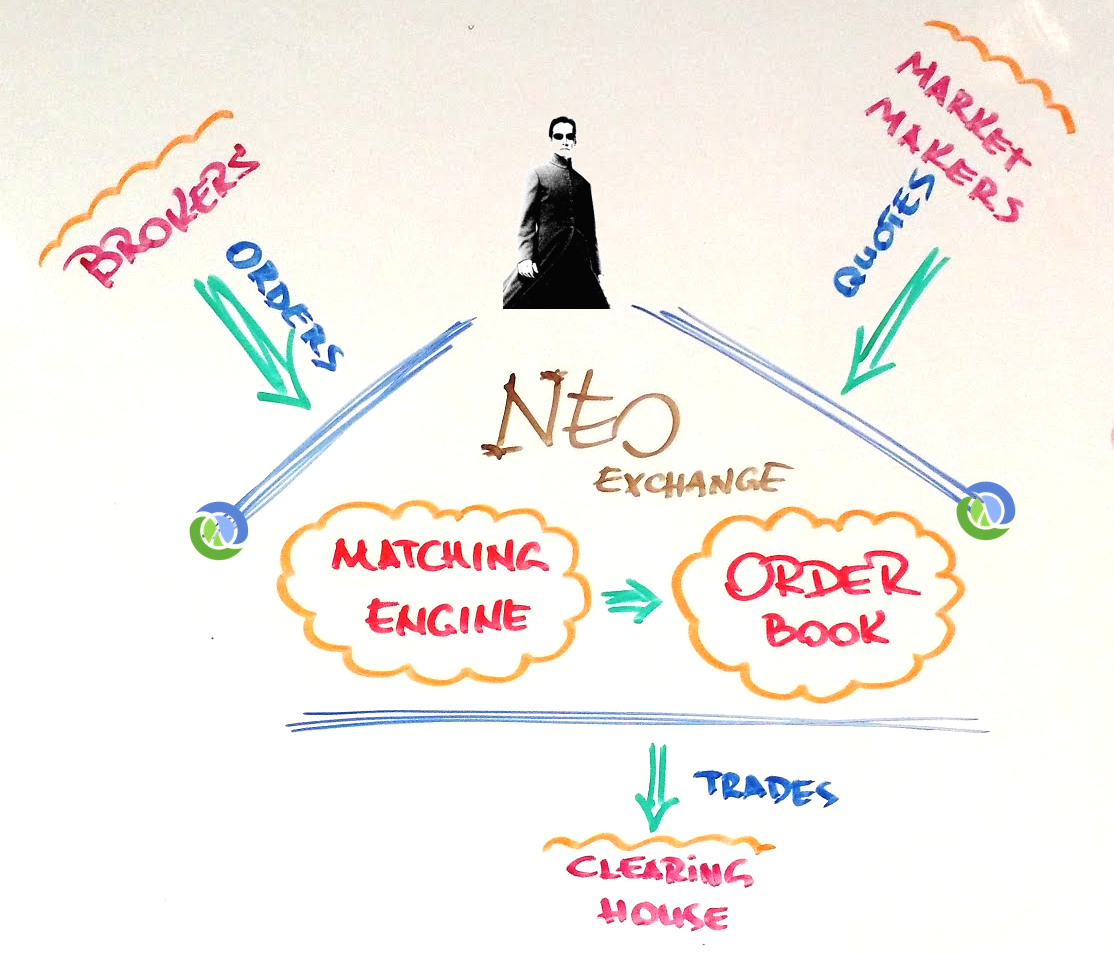 MARKET
MAKERS
BROKERS
ORDERS
QUOTES
NEO
EXCHANGE
MATCHING
ENGINE
ORDER
BOOK
TRADES
CLEARING
HOUSE